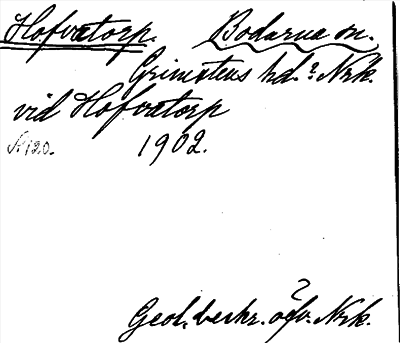 Hofvatorp. Bodarna m.
Grimstens hd.? Nrk.
vid Hofvatorp
N 120. 1902.
Geol. beskr. öfv. Nrk.